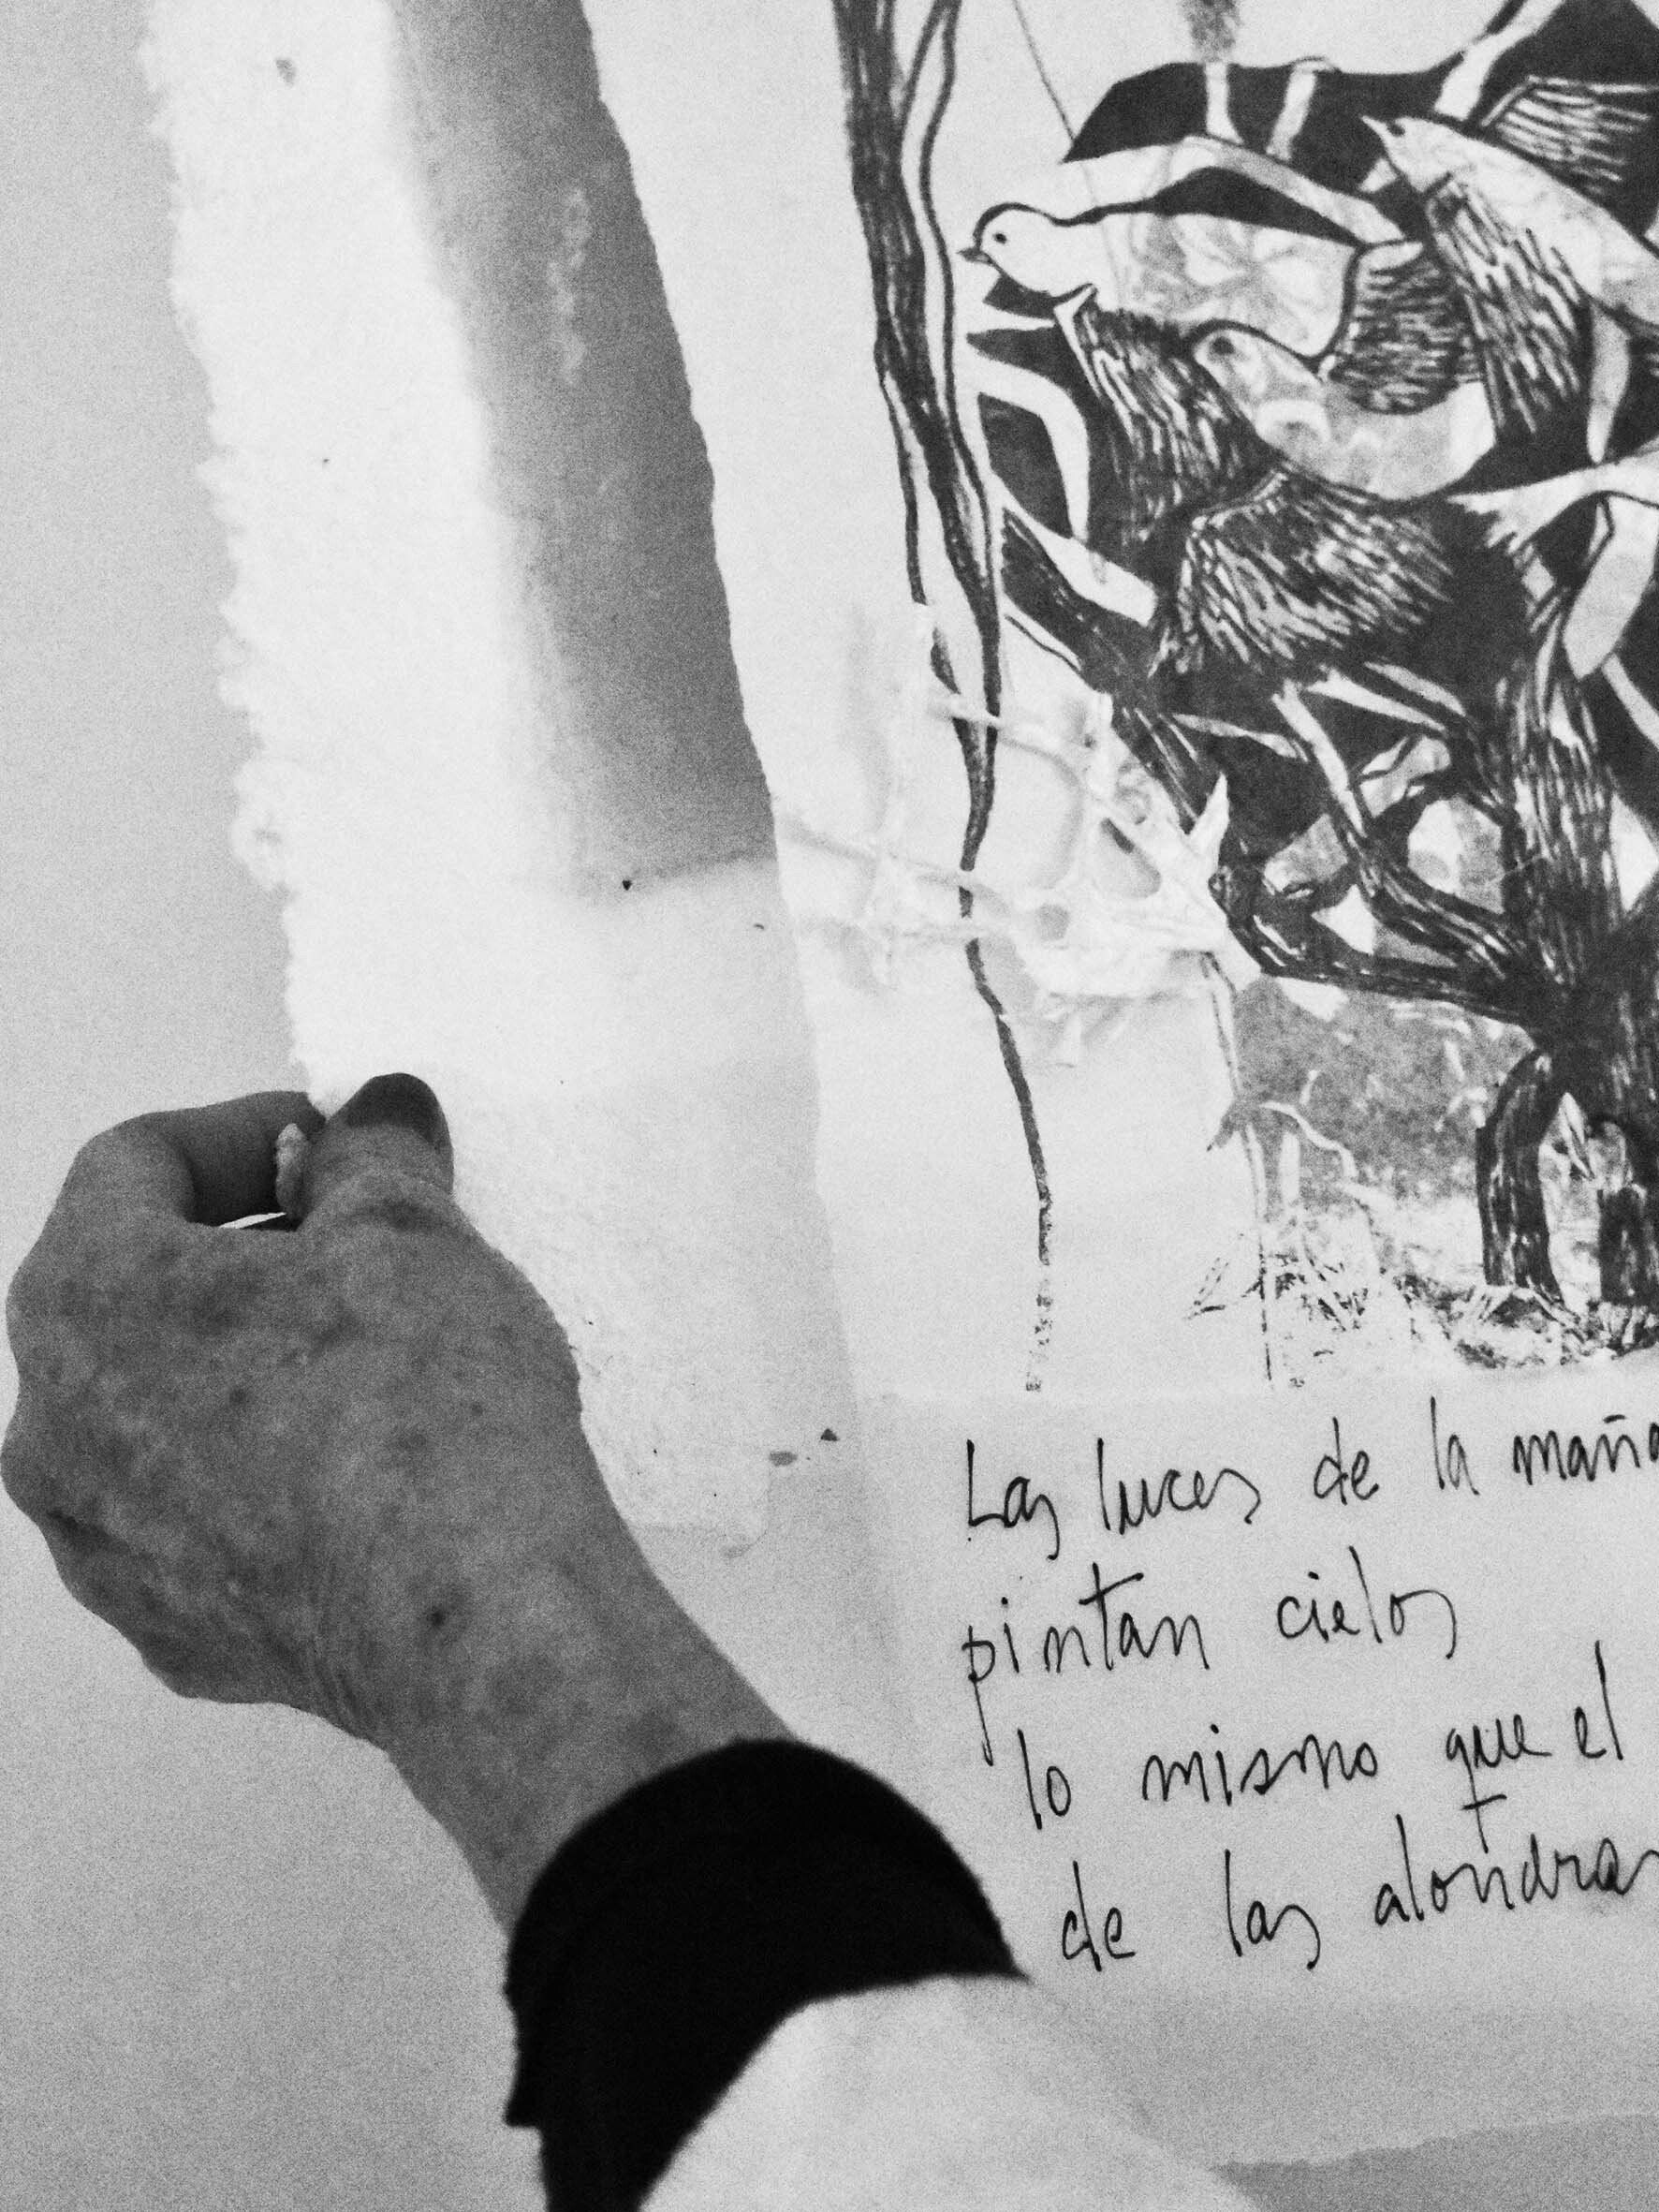 Las luces de la maña
pintan cielos
lo mismo que el
de las alondras